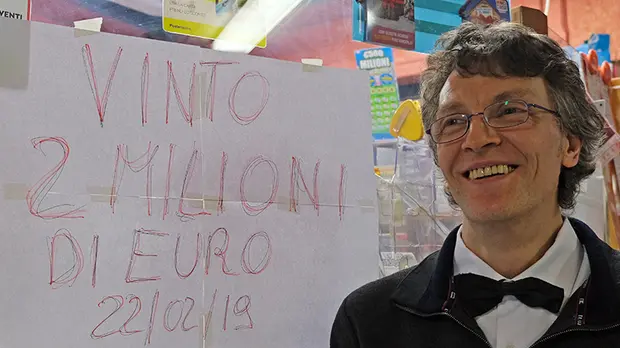 VENTI
€500
MILIONI
VINTO
2 MILIONI
DI EURO
22/02/19